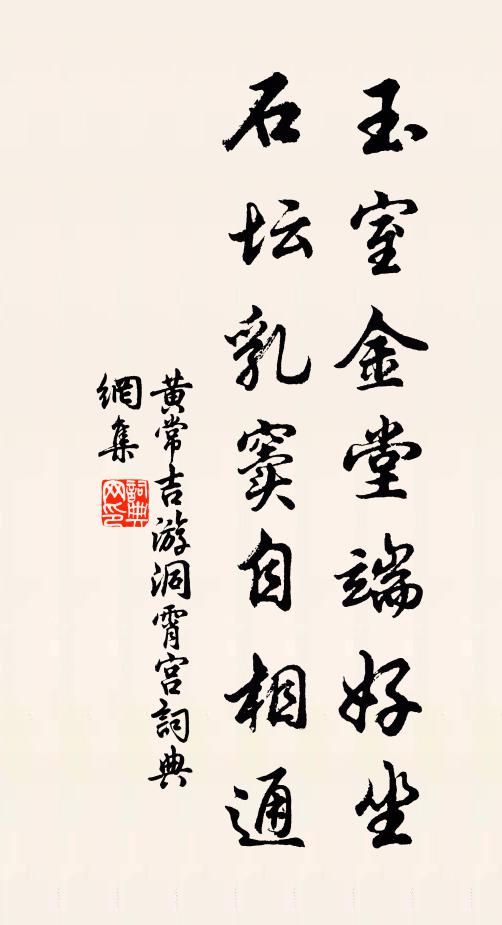 玉室金堂端好坐
石坛乳窦自相通
黄常吉游洞霄宫詞典
網集
詞典
网印